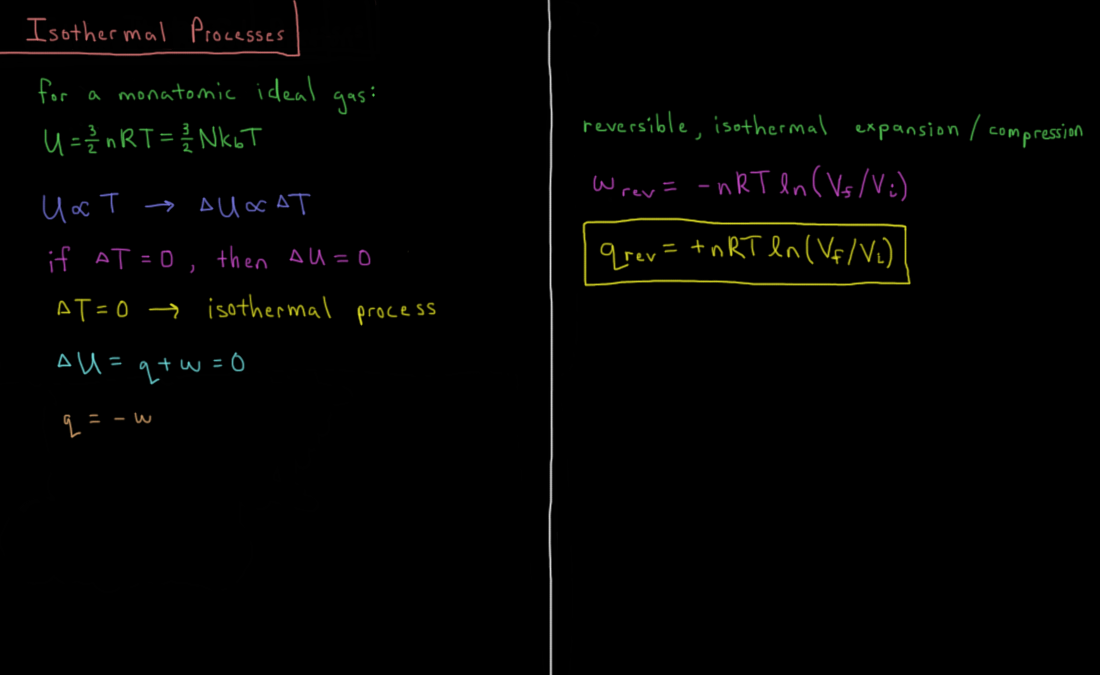 Isothermal Processes
for a monatomic ideal gas:
U = 3/2 nRT = 3/2 NkbT
U ∝ T → ΔU ∝ ΔT
if ΔT = 0, then ΔU = 0
ΔT = 0 → isothermal process
ΔU = q + w = 0
q = - w
reversible, isothermal expansion / compression
wrev = - nRT ln(Vf/Vi)
qrev = + nRT ln(Vf/Vi)